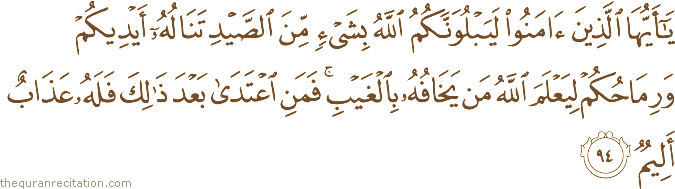 يَـٰٓأَيُّهَا ٱلَّذِينَ ءَامَنُوا۟ لَيَبْلُوَنَّكُمُ ٱللَّهُ بِشَىْءٍ مِّنَ ٱلصَّيْدِ تَنَالُهُۥٓ أَيْدِيكُمْ
وَرِمَاحُكُمْ لِيَعْلَمَ ٱللَّهُ مَن يَخَافُهُۥ بِٱلْغَيْبِ ۚ فَمَنِ ٱعْتَدَىٰ بَعْدَ ذَٰلِكَ فَلَهُۥ عَذَابٌ
أَلِيمٌ ٩٤
thequranrecitation.com